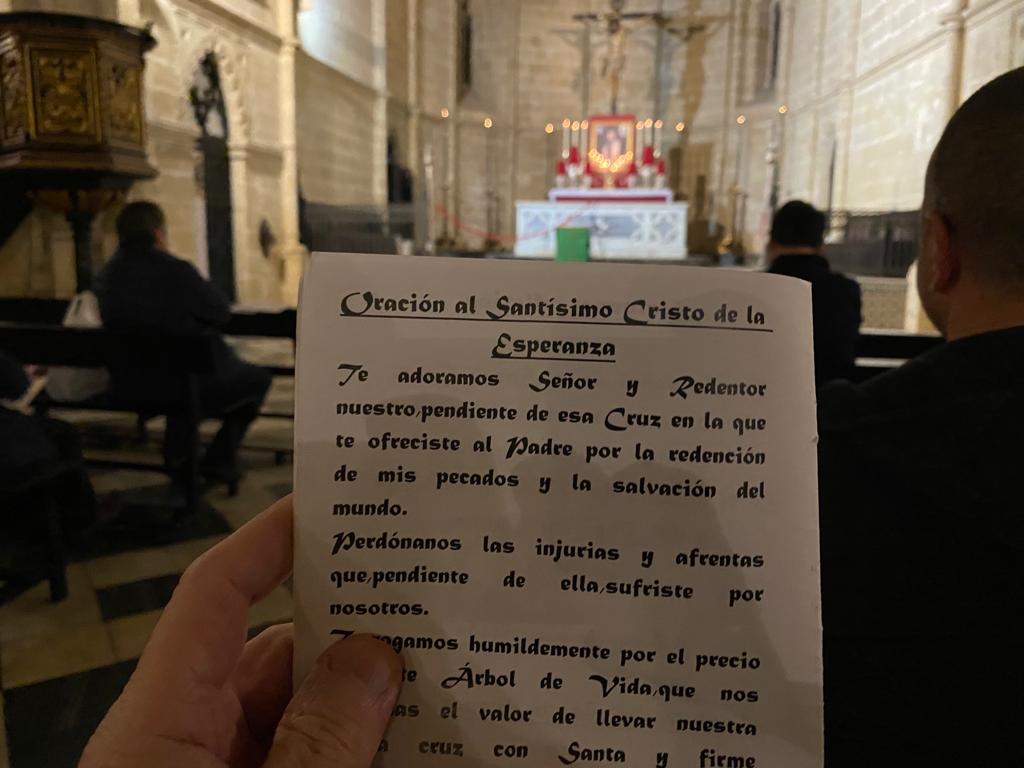 Oración al Santísimo Cristo de la
Esperanza
Te adoramos Señor y Redentor
nuestro,pendiente de esa Cruz en la que
te ofreciste al Padre por la redención
de mis pecados y la salvación del
mundo.
Perdónanos las injurias y afrentas
que,pendiente de ella,sufriste por
nosotros.
humildemente por el precio
Árbol de Vida,que nos
el valor de llevar nuestra
cruz con Santa y firme